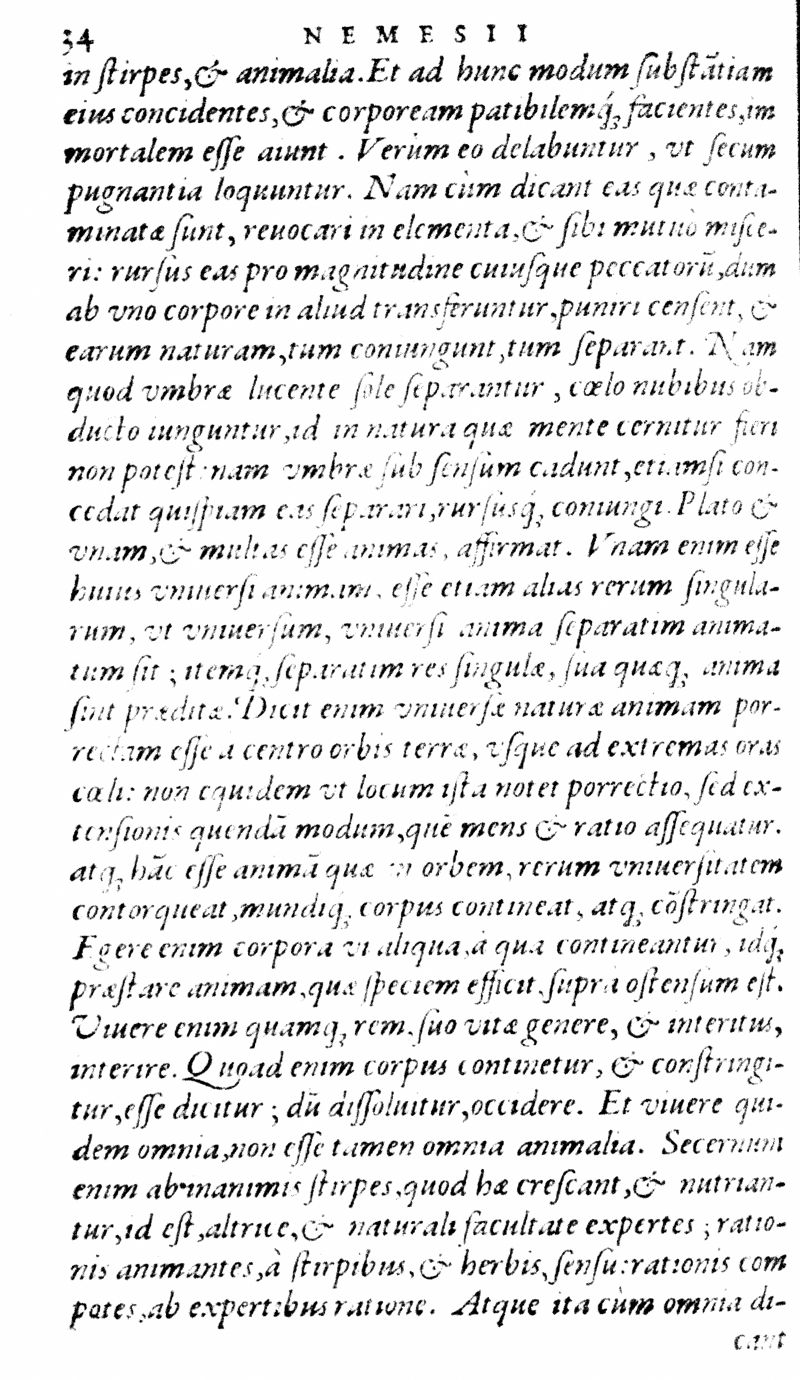 34 NEMESII
in ſtirpes,& animalia. Et ad hunc modum ſubſtãtiam
eius concidentes,& corpoream patibilemq́; facientes,im
mortalem eſſe aiunt . Verùm eo delabuntur , vt ſecum
pugnantia loquuntur. Nam cùm dicant eas quæ conta-
minatæ ſunt, reuocari in elementa,& ſibi mutuò miſce-
ri: rurſus eas pro magnitudine cuiuſque peccatorũ,dum
ab vno corpore in aliud transferuntur,puniri cenſent, &
earum naturam,tum coniungunt,tum ſeparant. Nam
quod vmbræ lucente ſole ſeparantur , cœlo nubibus ob-
ducto iunguntur,id in natura quæ mente cernitur fieri
non poteſt: nam vmbræ ſub ſenſum cadunt,etiamſi con-
cedat quiſpiam eas ſeparari,rurſusq́; coniungi. Plato &
vnam,& multas eſſe animas, affirmat. Vnam enim eſſe
huius vniuerſi animam, eſſe etiam alias rerum ſingula-
rum, vt vniuerſum, vniuerſi anima ſeparatim anima-
tum ſit ; itemq́; ſeparatim res ſingulæ, ſua quæq; anima
ſint præditæ. Dicit enim vniuerſæ naturæ animam por-
rectam eſſe a centro orbis terræ, vſque ad extremas oras
cœli: non equidem vt locum iſta notet porrectio, ſed ex-
tenſionis quendã modum,quẽ mens & ratio aſſequatur.
atq; hãc eſſe animã quæ in orbem, rerum vniuerſitatem
contorqueat,mundiq; corpus contineat, atq; cõſtringat.
Egere enim corpora vi aliqua,à qua contineantur, idq́;
præſtare animam,quæ ſpeciem efficit,ſupra oſtenſum eſt.
Viuere enim quamq; rem,ſuo vitæ genere, & interitus,
interire. Quoad enim corpus continetur, & conſtringi-
tur,eſſe dicitur ; dũ diſſoluitur,occidere. Et viuere qui-
dem omnia,non eſſe tamen omnia animalia. Secernunt
enim ab inanimis ſtirpes,quod hæ creſcant,& nutrian-
tur,id eſt,altrice,& naturali facultate expertes ; ratio-
nis animantes,à ſtirpibus,& herbis,ſenſu:rationis com
potes,ab expertibus ratione. Atque ita cùm omnia di-
cant